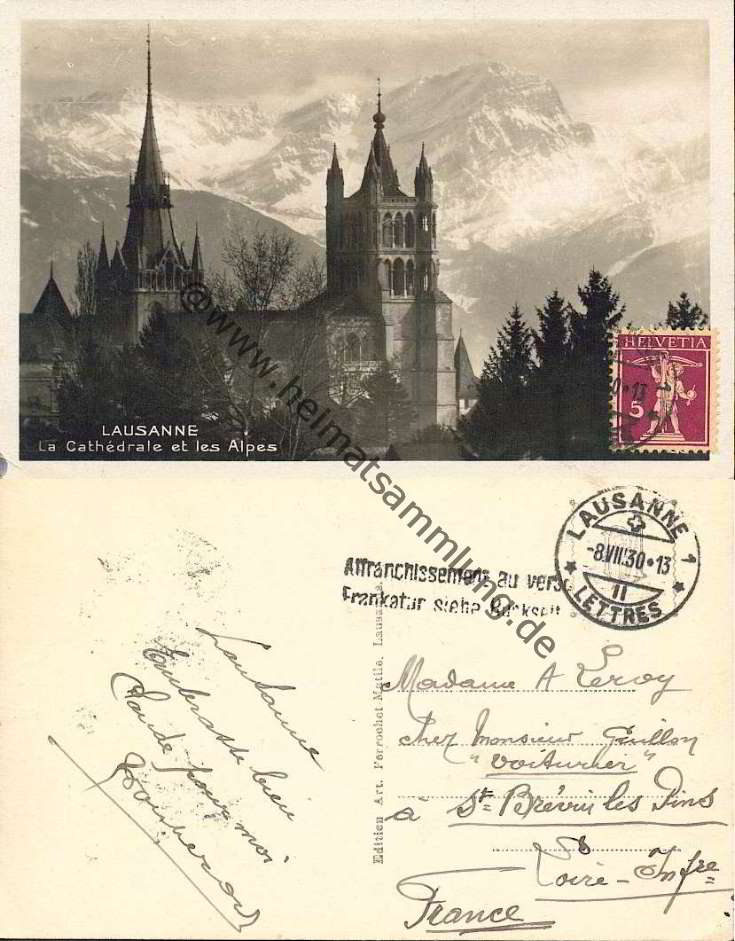 HELVETIA
5
LAUSANNE
La Cathédrale et les Alpes
@www.heimatsammlung.de
LAUSANNE 1
-8.VII.30•13
11
LETTRES
Affranchissement au verso
Frankatur siehe Rückseite
Edition Art. Perrochet Matile, Lausanne
Lausanne
Embrasse bien
Claude pour moi
Madame A Leroy
chez Monsieur Guillon
"Voiturier"
à St-Brévin les Pins
Loire-Infre
France